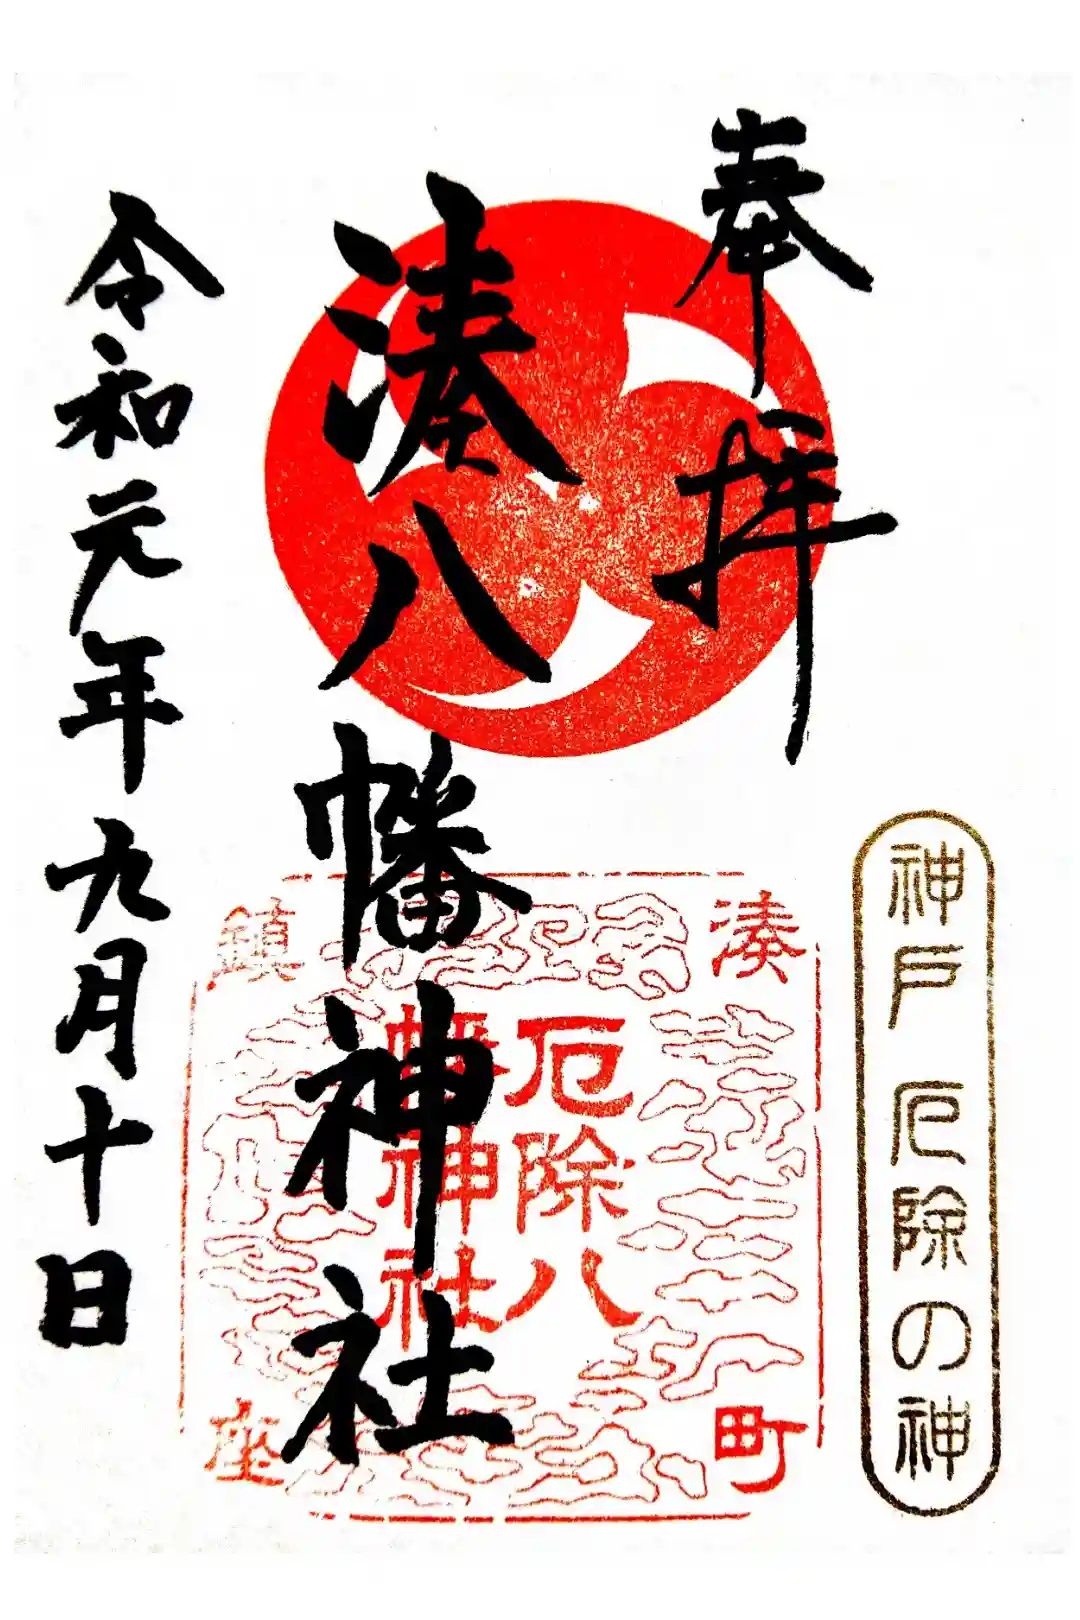 奉拝
神戸厄除の神
湊八幡神社
湊町
厄除八
幡神社
鎮座
令和元年九月十日